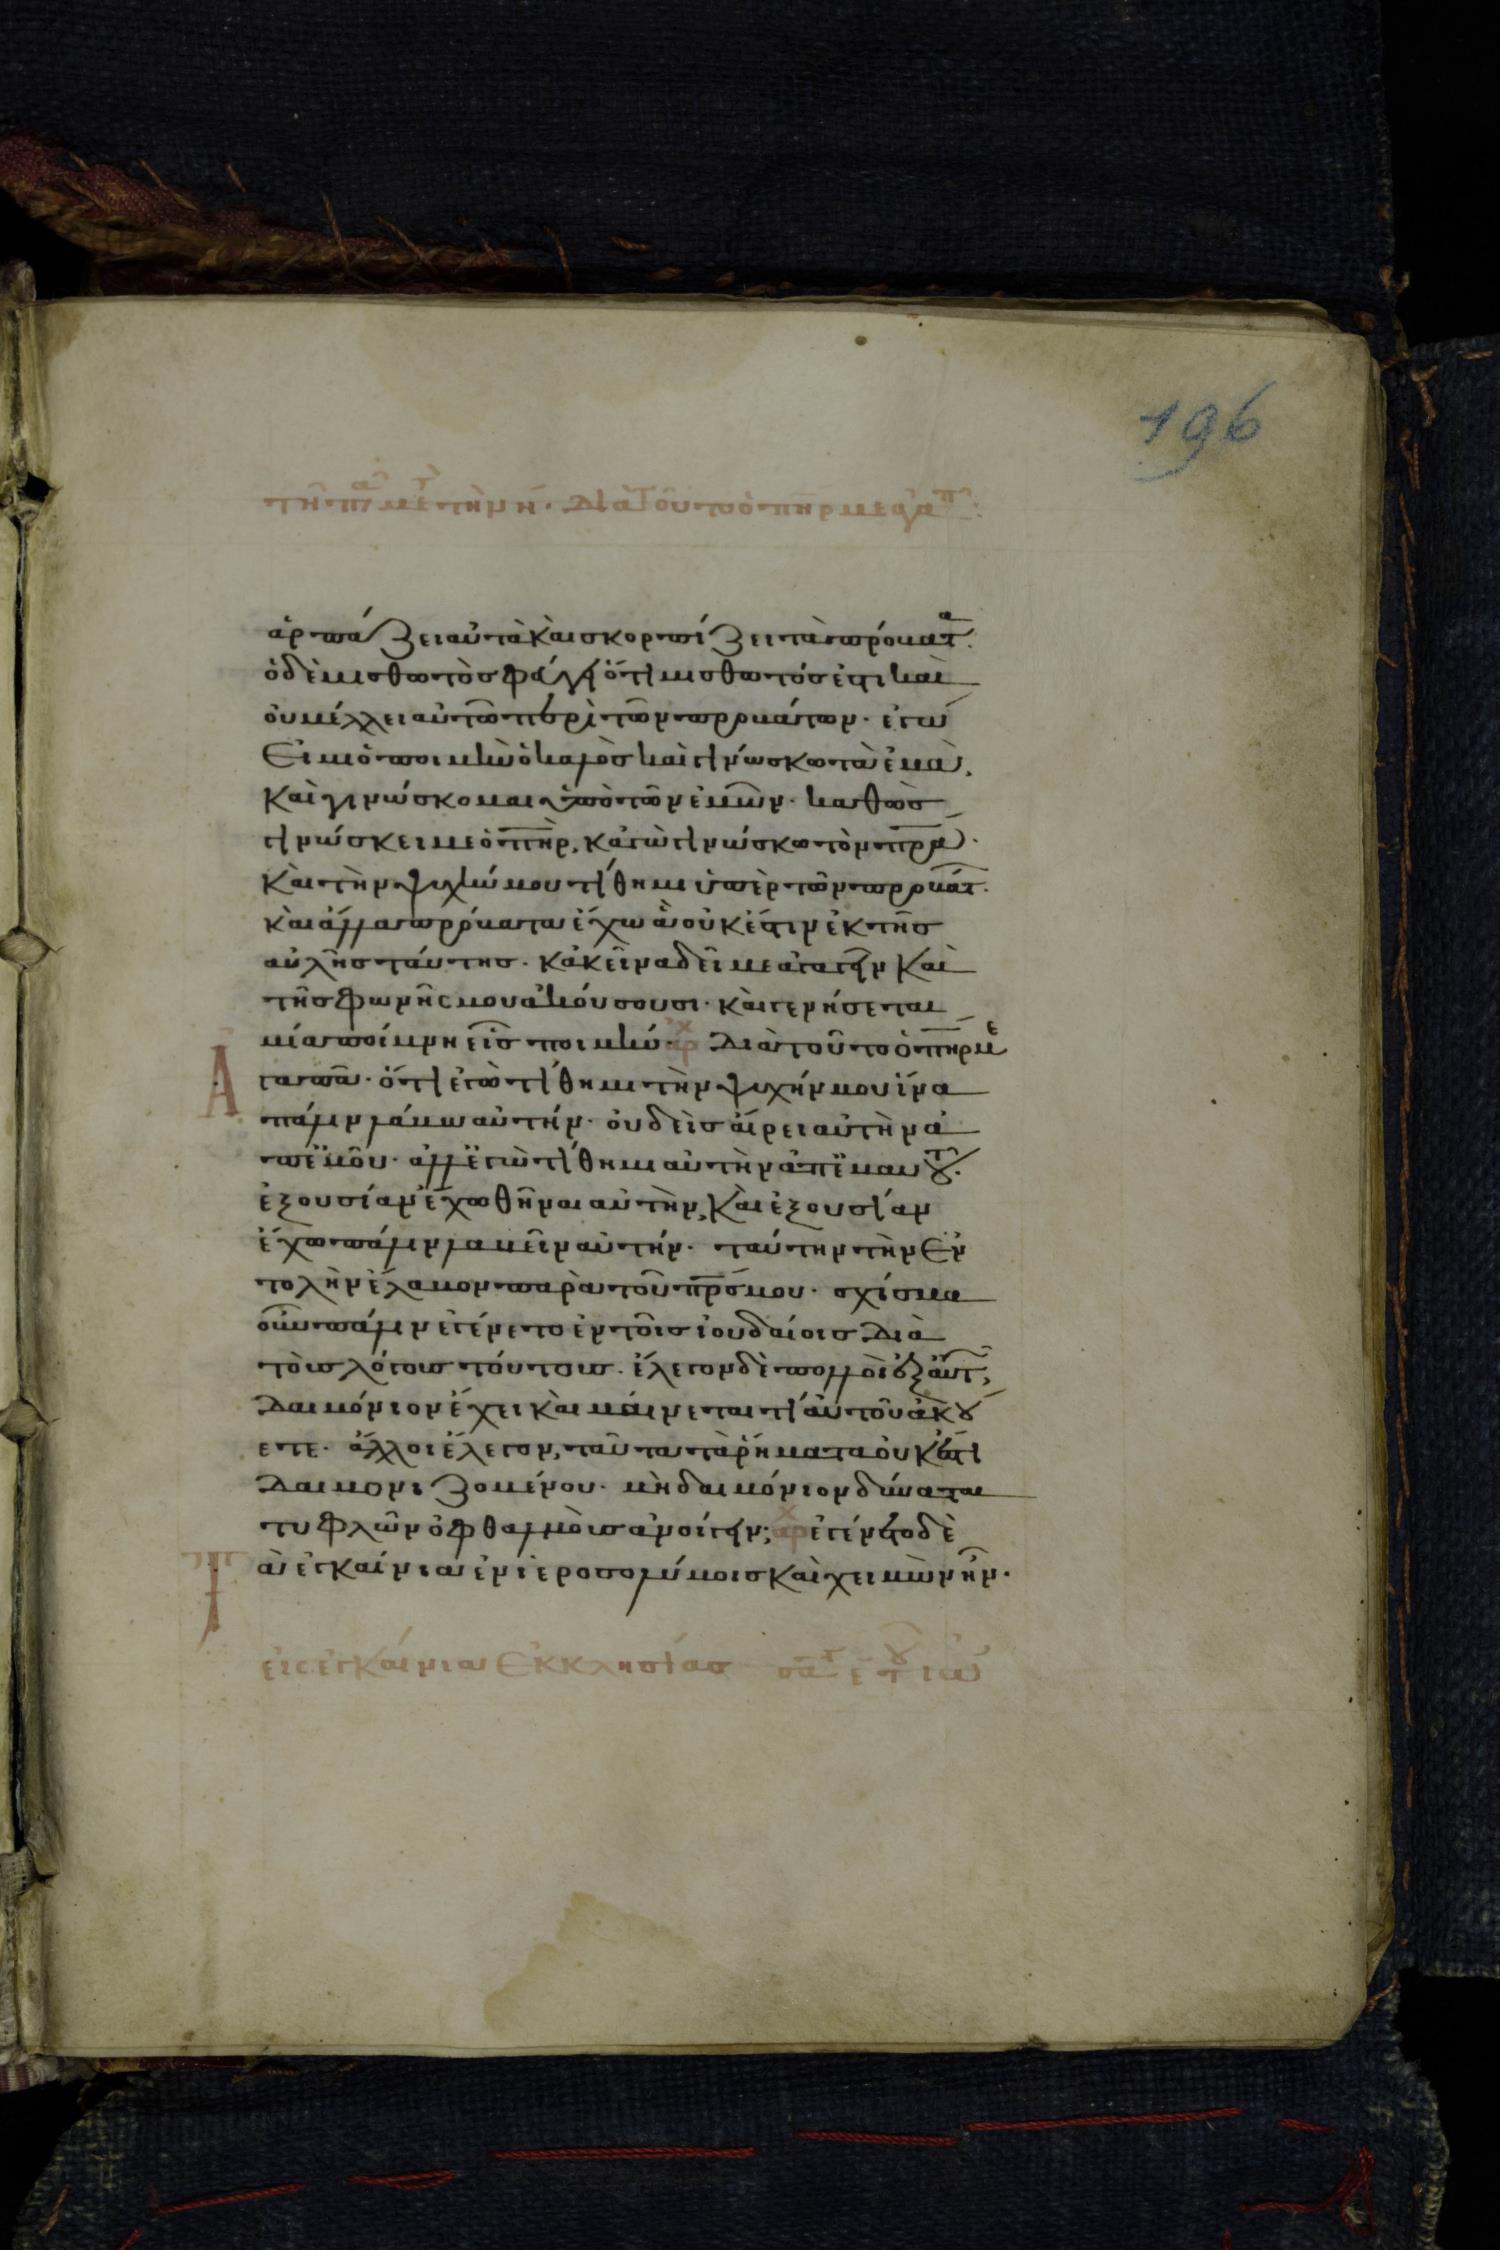 196
τῆ παρ μετ τὴν ν. Διὰ τοῦτο ὁ πηρ με ἀγαπ:
ἁρπάζει αὐτὰ καὶ σκορπίζει τὰ πρόβατα.
ὁ δὲ μισθωτὸς φεύγει ὅτι μισθωτός ἐστι καὶ
οὐ μέλλει αὐτῶ περὶ τῶν προβάτων. ἐγώ
εἰμι ὁ ποιμὴν ὁ καλὸς καὶ γινώσκω τὰ ἐμὰ,
καὶ γινώσκομαι ὑπὸ τῶν ἐμῶν. καθὼς
γινώσκει με ὁ πηρ, κἀγὼ γινώσκω τὸν πρα.
καὶ τὴν ψυχήν μου τίθημι ὑπὲρ τῶν προβάτ.
καὶ ἄλλα πρόβατα ἔχω ἃ οὐκ ἔστιν ἐκ τῆς
αὐλῆς ταύτης. κἀκεῖνα δεῖ με ἀγαγεῖν καὶ
τῆς φωνῆς μου ἀκούσουσι. καὶ γενήσεται
μία ποίμνη εἷς ποιμήν. αρχ Διὰ τοῦτο ὁ πηρ με
ἀγαπᾶ. ὅτι ἐγὼ τίθημι τὴν ψυχήν μου ἵνα
πάλιν λάβω αὐτήν. οὐδεὶς αἴρει αὐτὴν ἀ
π ἐμοῦ. ἀλλ ἐγὼ τίθημι αὐτὴν ἀπ ἐμαυτοῦ.
ἐξουσίαν ἔχω θῆναι αὐτὴν, καὶ ἐξουσίαν
ἔχω πάλιν λαβεῖν αὐτήν. ταύτην τὴν ἐν
τολὴν ἔλαβον παρὰ τοῦ πρς μου. σχίσμα
οὖν πάλιν ἐγένετο ἐν τοῖς ἰουδαίοις διὰ
τοὺς λόγους τούτους. ἔλεγον δὲ πολλοὶ ἐξ αὐτ,
δαιμόνιον ἔχει καὶ μαίνεται τί αὐτοῦ ἀκού
ετε. ἄλλοι ἔλεγον, ταῦτα τὰ ῥήματα οὐκ ἔστι
δαιμονιζομένου. μὴ δαιμόνιον δύναται
τυφλῶν ὀφθαλμοὺς ἀνοίγειν; αρχ ἐγένετο δὲ
τὰ ἐγκαίνια ἐν ἱεροσολύμοις καὶ χειμὼν ἦν.
εἰς ἐγκαίνια ἐκκλησίας